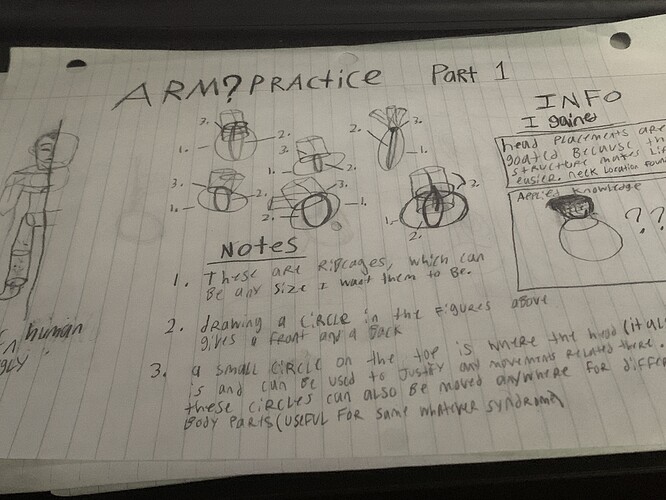 ARM? PRACTICE Part 1
3. 2. 1.
3. 2. 1.
2. 3. 1.
3. 2. 1.
3. 1. 2.
1. 2. 2.
INFO
I gained
head placements are
goated. Because th
structure makes li
easier. neck location foun
Applied Knowledge
? ?
human
Notes
1. These are Ribcages, which can
Be any size I want them to Be.
2. drawing a circle in the figures above
gives a front and a Back
3. a small circle on the top is where the head (ital
is and can Be used to Justify any movements related there.
these circles can also Be moved anywhere for differ
Body parts (useful for same whatever syndrome)